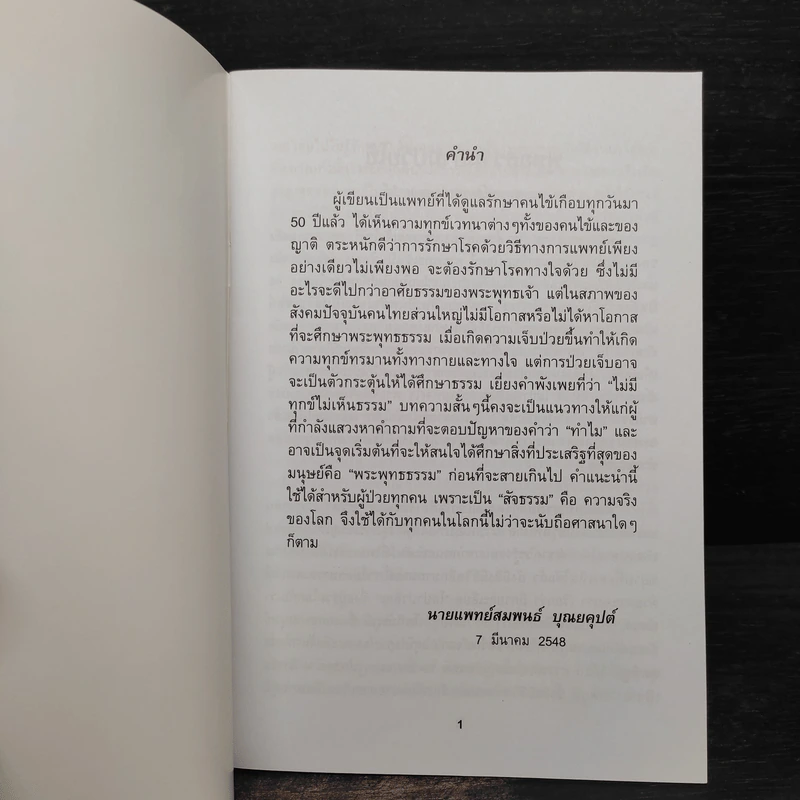 คำนำ
ผู้เขียนเป็นแพทย์ที่ได้ดูแลรักษาคนไข้เกือบทุกวันมา
50 ปีแล้ว ได้เห็นความทุกข์เวทนาต่างๆทั้งของคนไข้และของ
ญาติ ตระหนักดีว่าการรักษาโรคด้วยวิธีทางการแพทย์เพียง
อย่างเดียวไม่เพียงพอ จะต้องรักษาโรคทางใจด้วย ซึ่งไม่มี
อะไรจะดีไปกว่าอาศัยธรรมของพระพุทธเจ้า แต่ในสภาพของ
สังคมปัจจุบันคนไทยส่วนใหญ่ไม่มีโอกาสหรือไม่ได้หาโอกาส
ที่จะศึกษาพระพุทธธรรม เมื่อเกิดความเจ็บป่วยขึ้นทำให้เกิด
ความทุกข์ทรมานทั้งทางกายและทางใจ แต่การป่วยเจ็บอาจ
จะเป็นตัวกระตุ้นให้ได้ศึกษาธรรม เยี่ยงคำพังเพยที่ว่า “ไม่มี
ทุกข์ไม่เห็นธรรม” บทความสั้นๆนี้คงจะเป็นแนวทางให้แก่ผู้
ที่กำลังแสวงหาคำถามที่จะตอบปัญหาของคำว่า “ทำไม” และ
อาจเป็นจุดเริ่มต้นที่จะให้สนใจได้ศึกษาสิ่งที่ประเสริฐที่สุดของ
มนุษย์คือ “พระพุทธธรรม” ก่อนที่จะสายเกินไป คำแนะนำนี้
ใช้ได้สำหรับผู้ป่วยทุกคน เพราะเป็น “สัจธรรม” คือ ความจริง
ของโลก จึงใช้ได้กับทุกคนในโลกนี้ไม่ว่าจะนับถือศาสนาใดๆ
ก็ตาม
นายแพทย์สมพนธ์ บุณยคุปต์
7 มีนาคม 2548
1